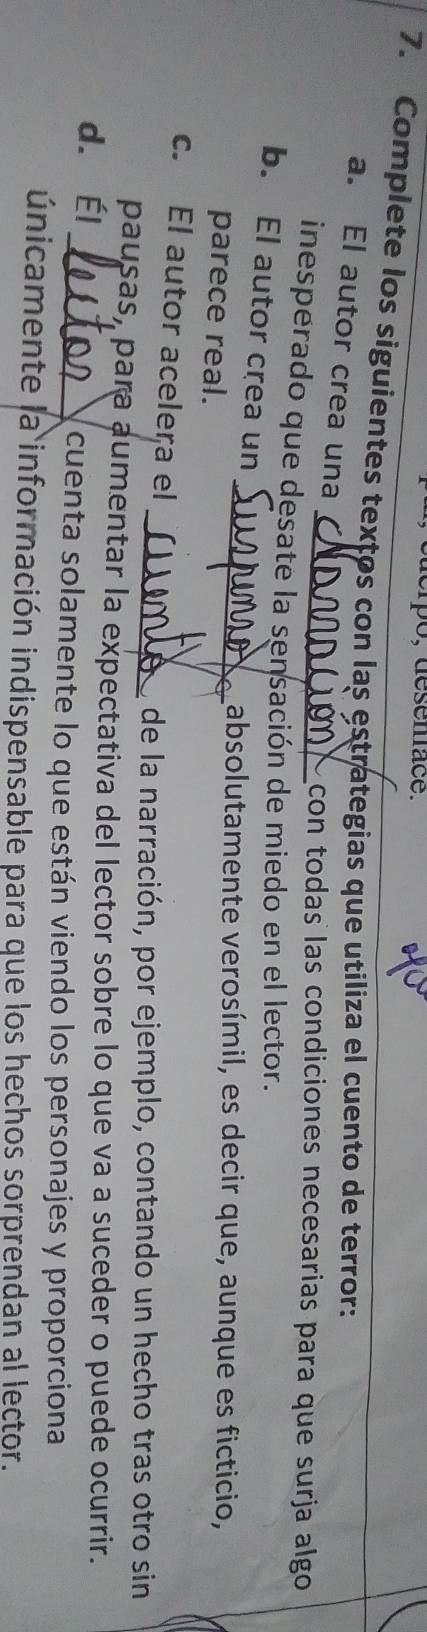 cuerpo, desenlace.
7. Complete los siguientes textos con las estrategias que utiliza el cuento de terror:
a. El autor crea una Narración con todas las condiciones necesarias para que surja algo
inesperado que desate la sensación de miedo en el lector.
b. El autor crea un Suspenso absolutamente verosímil, es decir que, aunque es ficticio,
parece real.
c. El autor acelera el cuento de la narración, por ejemplo, contando un hecho tras otro sin
pausas, para aumentar la expectativa del lector sobre lo que va a suceder o puede ocurrir.
d. Él lector cuenta solamente lo que están viendo los personajes y proporciona
únicamente la información indispensable para que los hechos sorprendan al lector.